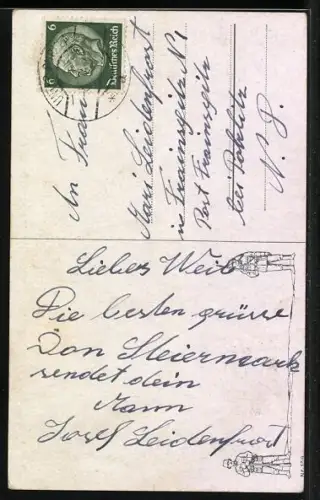 6 Deutsches Reich 6
An Frau
Mari Leidenfrost
in Frainspitz N 1
Post Frainspitz
bei Pohrlitz
N. D.
Liebes Weib
Die besten grüsse
Von Steiermark
sendet dein
Mann
Josef Leidenfrost